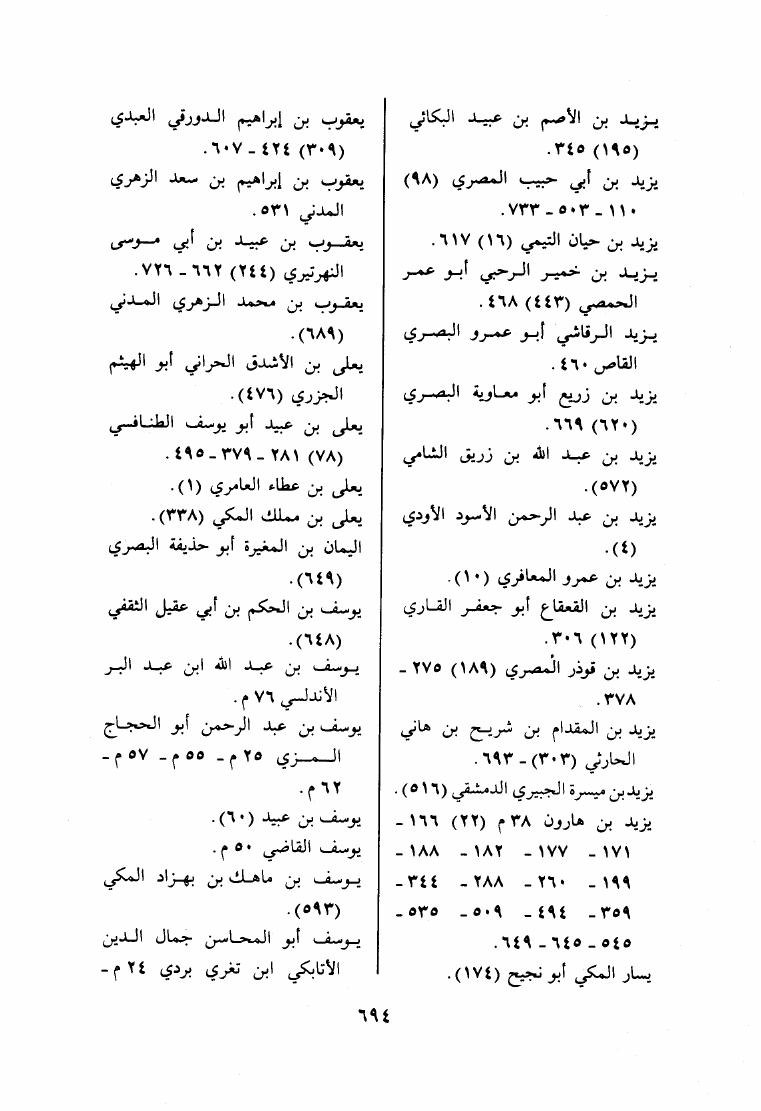 يـزيـد بن الأصم بن عبيـد البكائي
(١٩٥) ٣٤٥.
يزيد بن أبي حبيب المصري (٩٨)
١١٠ - ٥٠٣ - ٧٣٣.
يزيد بن حيان التيمي (١٦) ٦١٧.
يـزيـد بن خميـر الـرحبي أبـو عمـر
الحمصي (٤٤٣) ٤٦٨.
يـزيد الـرقاشي أبـو عمـرو البصـري
القاص ٤٦٠.
يزيد بن زريع أبو معـاوية البصـري
(٦٢٠) ٦٦٩.
يزيد بن عبـد الله بن زريق الشامي
(٥٧٢).
يزيد بن عبد الرحمن الأسود الأودي
(٤).
يزيد بن عمرو المعافري (١٠).
يزيد بن القعقاع أبو جعفـر القـاري
(١٢٢) ٣٠٦.
يزيد بن قوذر المصري (١٨٩) ٢٧٥ -
٣٧٨.
يزيد بن المقدام بن شريـح بن هاني
الحارثي (٣٠٣) - ٦٩٣.
يزيد بن ميسرة الجبيري الدمشقي (٥١٦).
يزيد بن هارون ٣٨ م (٢٢) ١٦٦ -
١٧١ - ١٧٧ - ١٨٢ - ١٨٨ -
١٩٩ - ٢٦٠ - ٢٨٨ - ٣٤٤ -
٣٥٩ - ٤٩٤ - ٥٠٩ - ٥٣٥ -
٥٤٥ - ٦٤٥ - ٦٤٩.
يسار المكي أبو نجيح (١٧٤).
يعقوب بن إبراهيم الـدورقي العبدي
(٣٠٩) ٤٢٤ - ٦٠٧.
يعقوب بن إبراهيم بن سعد الزهري
المدني ٥٣١.
يعقـوب بن عبيـد بن أبي مـوسى
النهرتيري (٢٤٤) ٦٦٢ - ٧٢٦.
يعقـوب بن محمد الـزهري المـدني
(٦٨٩).
يعلى بن الأشدق الحراني أبو الهيثم
الجزري (٤٧٦).
يعلى بن عبيد أبو يوسف الطنـافسي
(٧٨) ٢٨١ - ٣٧٩ - ٤٩٥.
يعلى بن عطاء العامري (١).
يعلى بن مملك المكي (٣٣٨).
اليمان بن المغيرة أبو حذيفة البصري
(٦٤٩).
يوسف بن الحكم بن أبي عقيل الثقفي
(٦٤٨).
يـوسف بن عبـد الله ابن عبـد البـر
الأندلسي ٧٦ م.
يوسف بن عبد الرحمن أبو الحجاج
المـزي ٢٥ م - ٥٥ م - ٥٧ م -
٦٢ م.
يوسف بن عبيد (٦٠).
يوسف القاضي ٥٠ م.
يـوسف بن ماهـك بن بهـزاد المكي
(٥٩٣).
يـوسف أبو المحـاسن جمال الـدين
الأتابكي ابن تغري بردي ٢٤ م -
٦٩٤